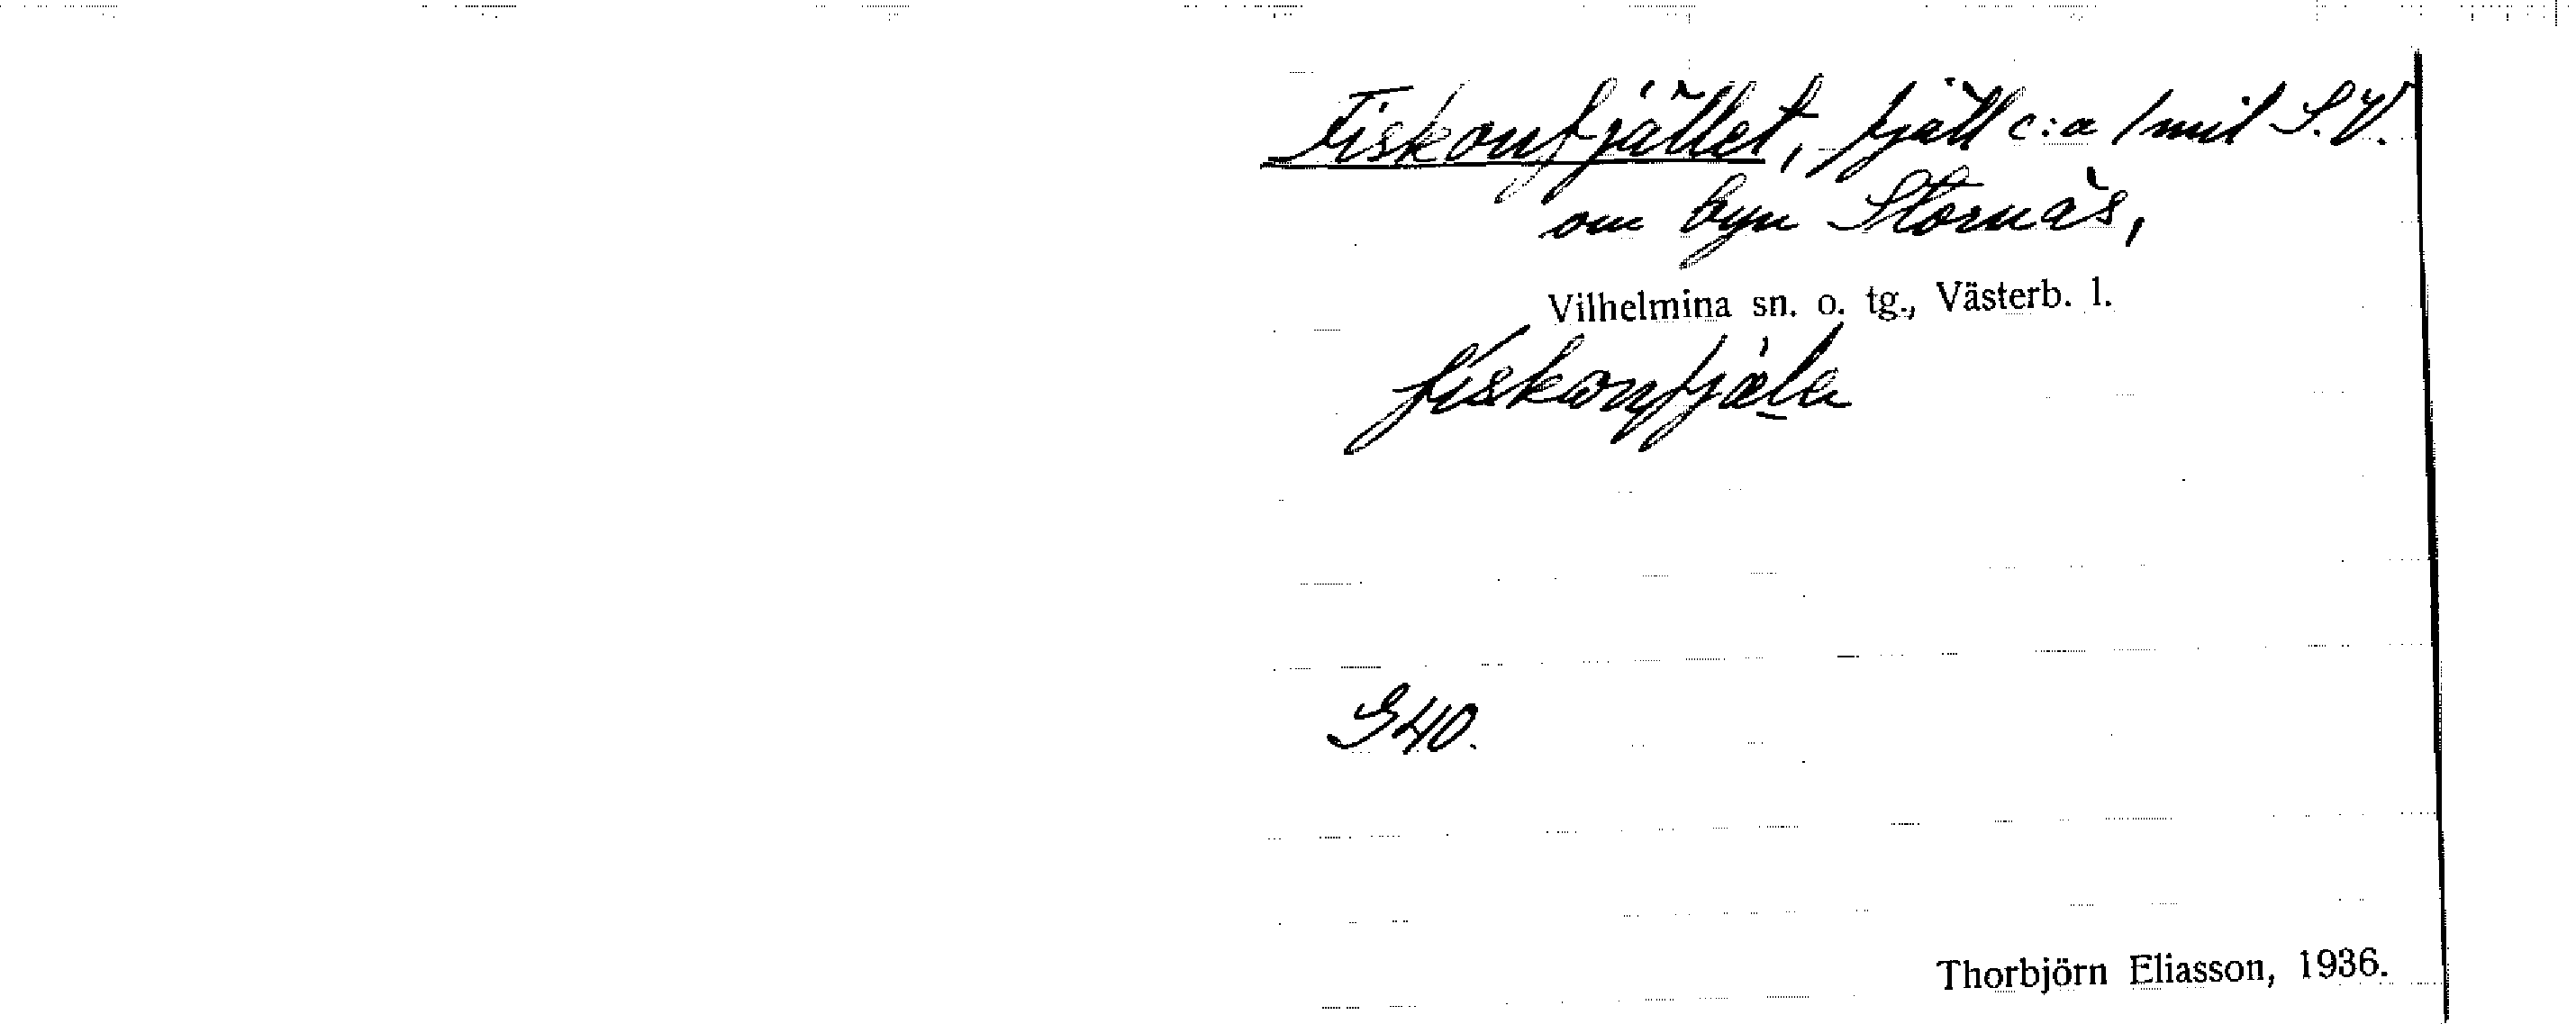 Fiskonfjället, fjäll c:a 1 mil S.V.
om byn Stornäs,
Vilhelmina sn. o. tg., Västerb. l.
fiskonfjæla
G40.
Thorbjörn Eliasson, 1936.